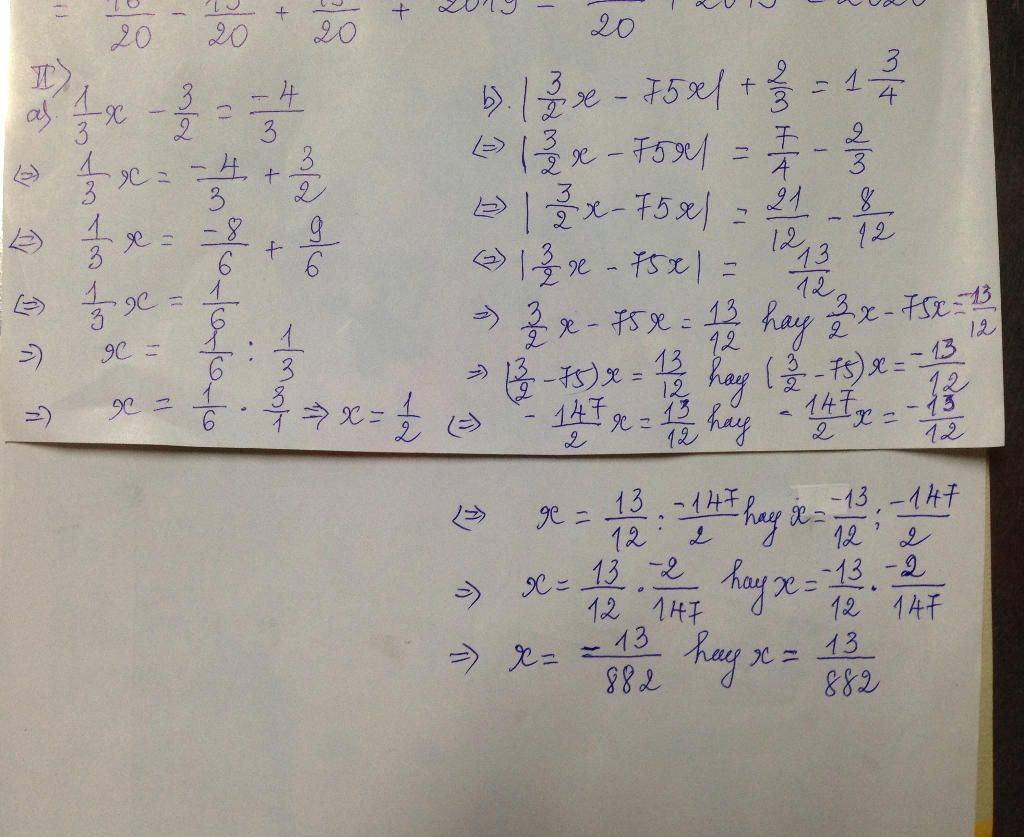 = 16/20 - 15/20 + 15/20 + 2019 - /20 + 2019 = 2020
II)
a). 1/3 x - 3/2 = -4/3
⇔ 1/3 x = -4/3 + 3/2
⇔ 1/3 x = -8/6 + 9/6
⇔ 1/3 x = 1/6
⇒ x = 1/6 : 1/3
⇒ x = 1/6 . 3/1 ⇒ x = 1/2
b). |3/2 x - 75x| + 2/3 = 1 3/4
⇔ |3/2 x - 75x| = 7/4 - 2/3
⇔ |3/2 x - 75x| = 21/12 - 8/12
⇔ |3/2 x - 75x| = 13/12
⇒ 3/2 x - 75x = 13/12 hay 3/2 x - 75x = -13/12
⇒ (3/2 - 75)x = 13/12 hay (3/2 - 75)x = -13/12
⇔ -147/2 x = 13/12 hay -147/2 x = -13/12
⇔ x = 13/12 : -147/2 hay x = -13/12 : -147/2
⇒ x = 13/12 . -2/147 hay x = -13/12 . -2/147
⇒ x = -13/882 hay x = 13/882